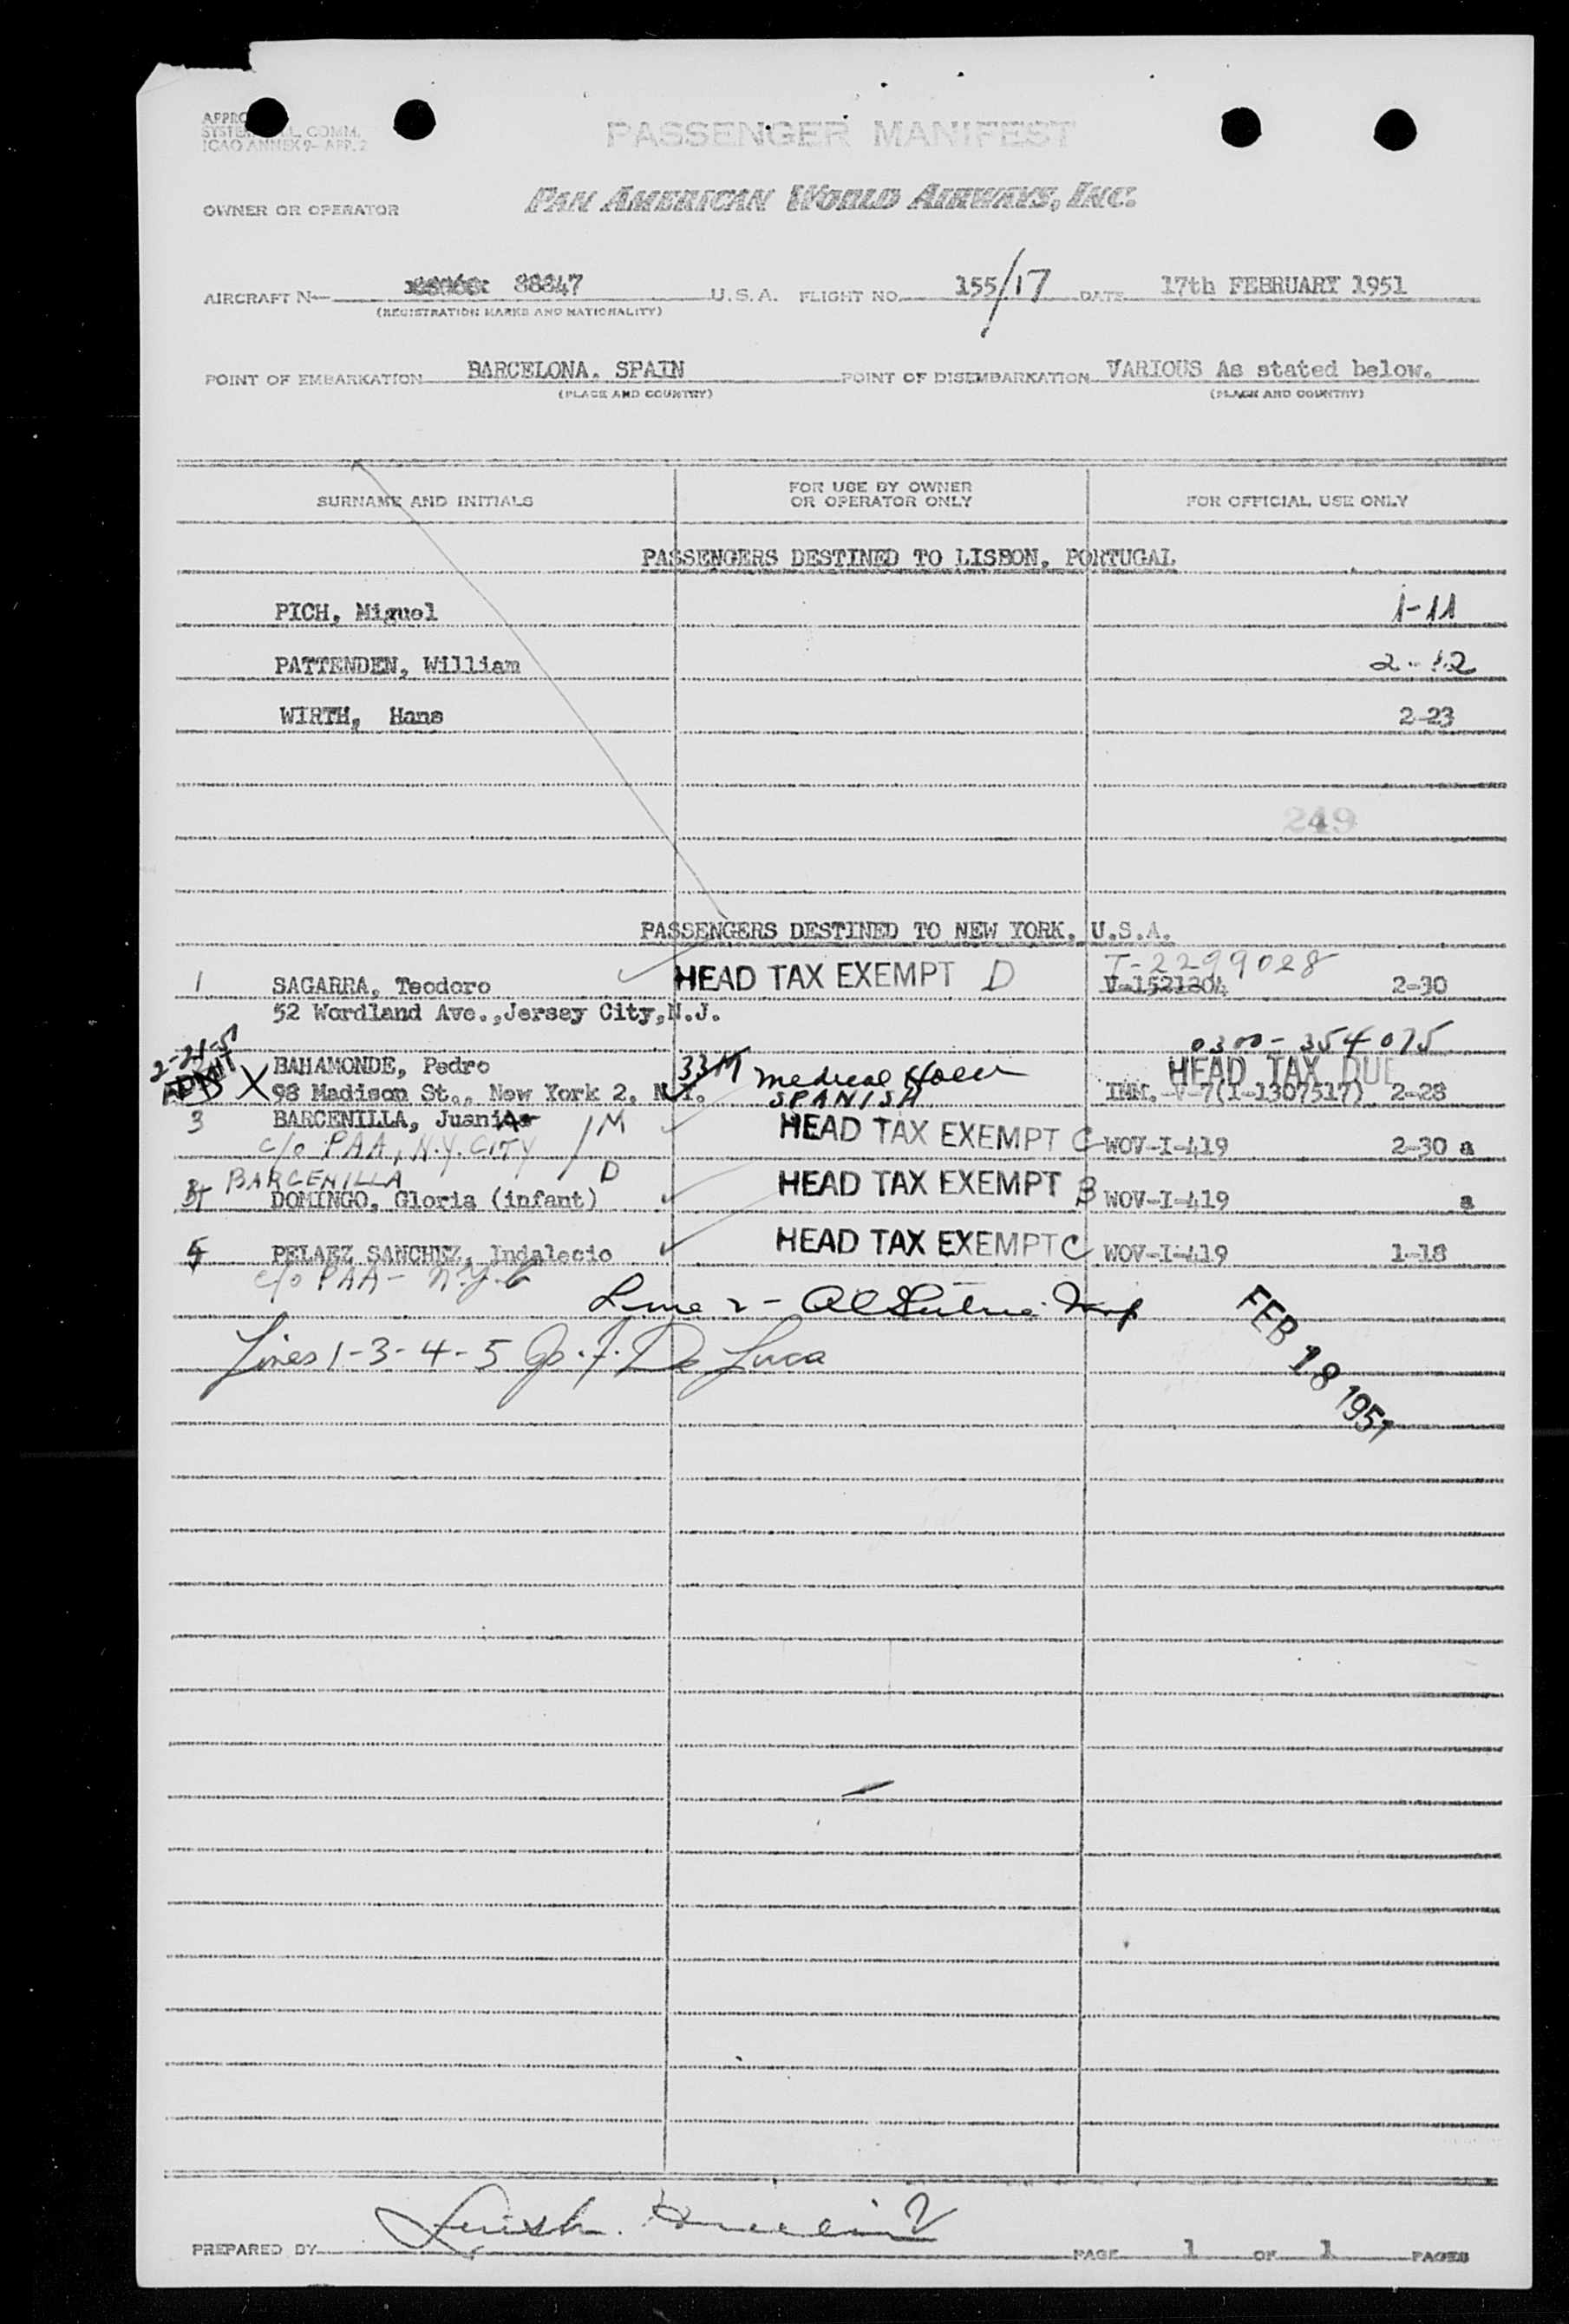 PASSENGER MANIFEST
ICAO ANNEX 9- APP. 2
OWNER OR OPERATOR PAN AMERICAN WORLD AIRWAYS, INC.
AIRCRAFT N 88847 U.S.A. FLIGHT NO. 155/17 DATE 17th FEBRUARY 1951
(REGISTRATION MARKS AND NATIONALITY)
POINT OF EMBARKATION BARCELONA. SPAIN POINT OF DISEMBARKATION VARIOUS As stated below.
(PLACE AND COUNTRY) (PLACE AND COUNTRY)
SURNAME AND INITIALS FOR USE BY OWNER OR OPERATOR ONLY FOR OFFICIAL USE ONLY
PASSENGERS DESTINED TO LISBON, PORTUGAL
PICH, Miguel 1-11
PATTENDEN, William 2-12
WIRTH, Hans 2-23
249
PASSENGERS DESTINED TO NEW YORK, U.S.A.
T-2299028
1 SAGARRA, Teodoro HEAD TAX EXEMPT D V-1521204 2-30
52 Wordland Ave.,Jersey City,N.J.
0300-354075
2-21-51 BAHAMONDE, Pedro 33M Medical Hold HEAD TAX DUE
X 98 Madison St., New York 2, N.Y. SPANISH IMM.-V-7(I-1307517) 2-28
3 BARCENILLA, Juan 1M HEAD TAX EXEMPT C WOV-I-419 2-30 a
c/o PAA, N.Y. CITY
BARCENILLA D
DOMINGO, Gloria (infant) HEAD TAX EXEMPT B WOV-I-419 a
5 PELAEZ SANCHEZ, Indalecio HEAD TAX EXEMPT C WOV-I-419 1-18
c/o PAA- N.Y.C
Line 2 -
FEB 18 1951
Lines 1-3-4-5 De Luca
PREPARED BY PAGE 1 OF 1 PAGES